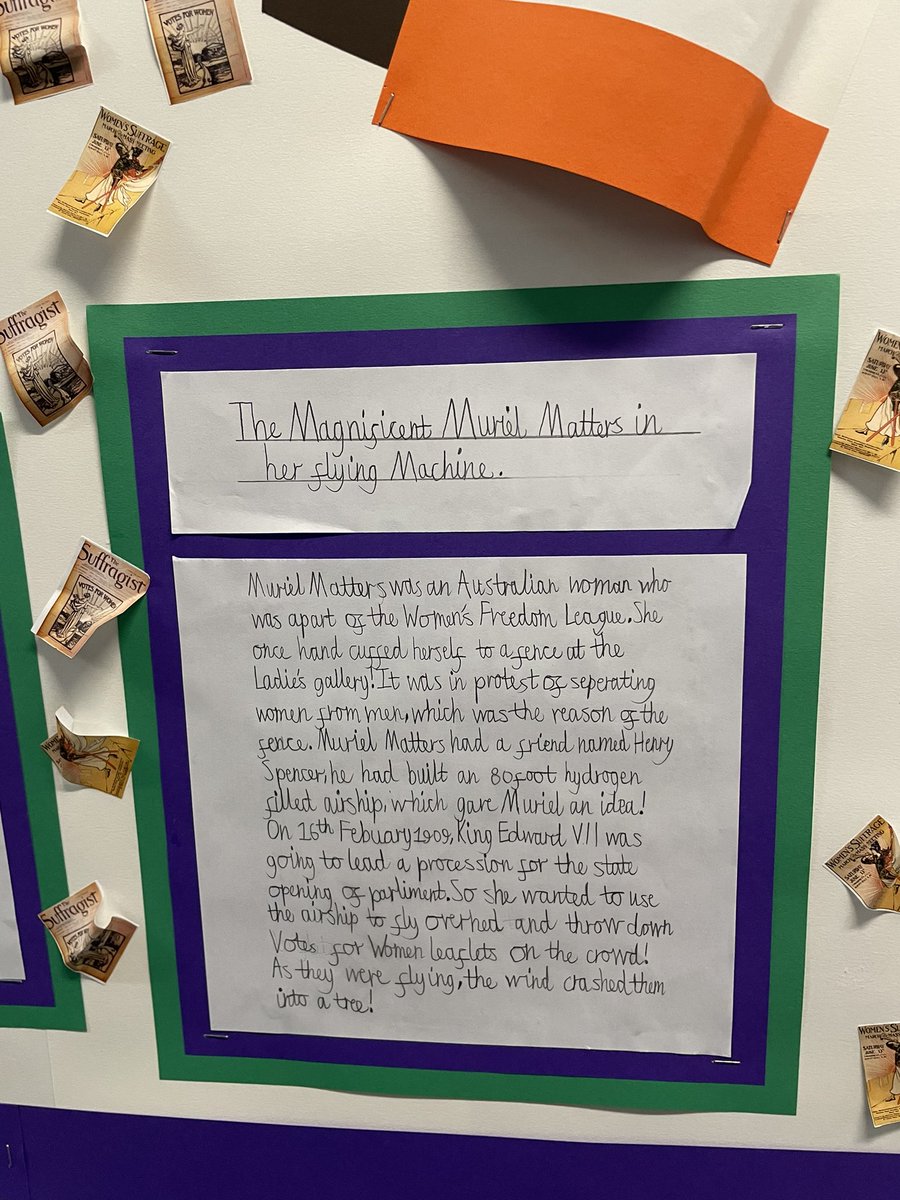 Suffragist
VOTES FOR WOMEN
VOTES FOR WOMEN
WOMEN'S SUFFRAGE
MARCH & MASS MEETING
SATURDAY
JUNE 13th
The
Suffragist
The Magnificent Muriel Matters in
her flying Machine.
Muriel Matters was an Australian woman who
was apart of the Women's Freedom League. She
once hand cuffed herself to a fence at the
Ladie's gallery! It was in protest of seperating
women from men, which was the reason of the
fence. Muriel Matters had a friend named Henry
Spencer, he had built an 80 foot hydrogen
filled airship, which gave Muriel an idea!
On 16th Febuary 1909, King Edward VII was
going to lead a procession for the state
opening of parliment. So she wanted to use
the airship to fly overhed and throw down
Votes for Women leaflets on the crowd!
As they were flying, the wind crashed them
into a tree!
The
Suffragist
VOTES FOR WOMEN
WOMEN'S
The
Suffragist
WOMEN'S SUFFRAGE
WOMEN'S SU
SATURDAY